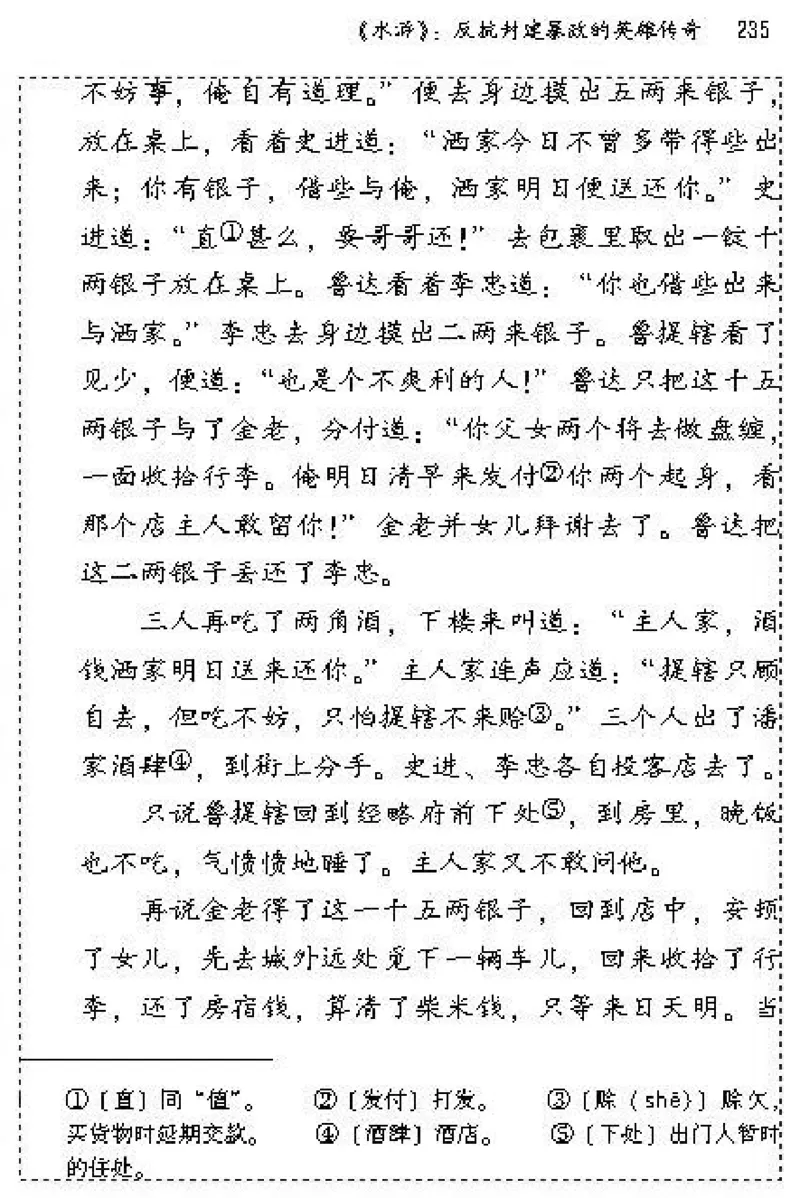 《水浒》：反抗封建暴政的英雄传奇 235
不妨事，俺自有道理。”便去身边摸出五两来银子，
放在桌上，看着史进道：“洒家今日不曾多带得些出
来；你有银子，借些与俺，洒家明日便送还你。”史
进道：“直①甚么，要哥哥还！”去包裹里取出一锭十
两银子放在桌上。鲁达看着李忠道：“你也借些出来
与洒家。”李忠去身边摸出二两来银子。鲁提辖看了
见少，便道：“也是个不爽利的人！”鲁达只把这十五
两银子与了金老，分付道：“你父女两个将去做盘缠，
一面收拾行李。俺明日清早来发付②你两个起身，看
那个店主人敢留你！”金老并女儿拜谢去了。鲁达把
这二两银子丢还了李忠。
三人再吃了两角酒，下楼来叫道：“主人家，酒
钱洒家明日送来还你。”主人家连声应道：“提辖只顾
自去，但吃不妨，只怕提辖不来赊③。”三个人出了潘
家酒肆④，到街上分手。史进、李忠各自投客店去了。
只说鲁提辖回到经略府前下处⑤，到房里，晚饭
也不吃，气愤愤地睡了。主人家又不敢问他。
再说金老得了这一十五两银子，回到店中，安顿
了女儿，先去城外远处觅下一辆车儿，回来收拾了行
李，还了房宿钱，算清了柴米钱，只等来日天明。当
①〔直〕同“值”。 ②〔发付〕打发。 ③〔赊（shē）〕赊欠，
买货物时延期交款。 ④〔酒肆〕酒店。 ⑤〔下处〕出门人暂时
的住处。